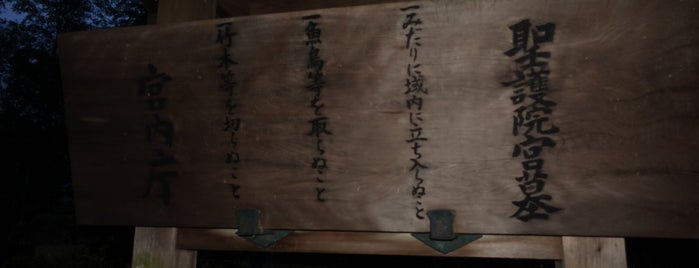 聖護院宮墓
一みだりに域内に立ち入らぬこと
一魚鳥等を取らぬこと
一竹木等を切らぬこと
宮内庁